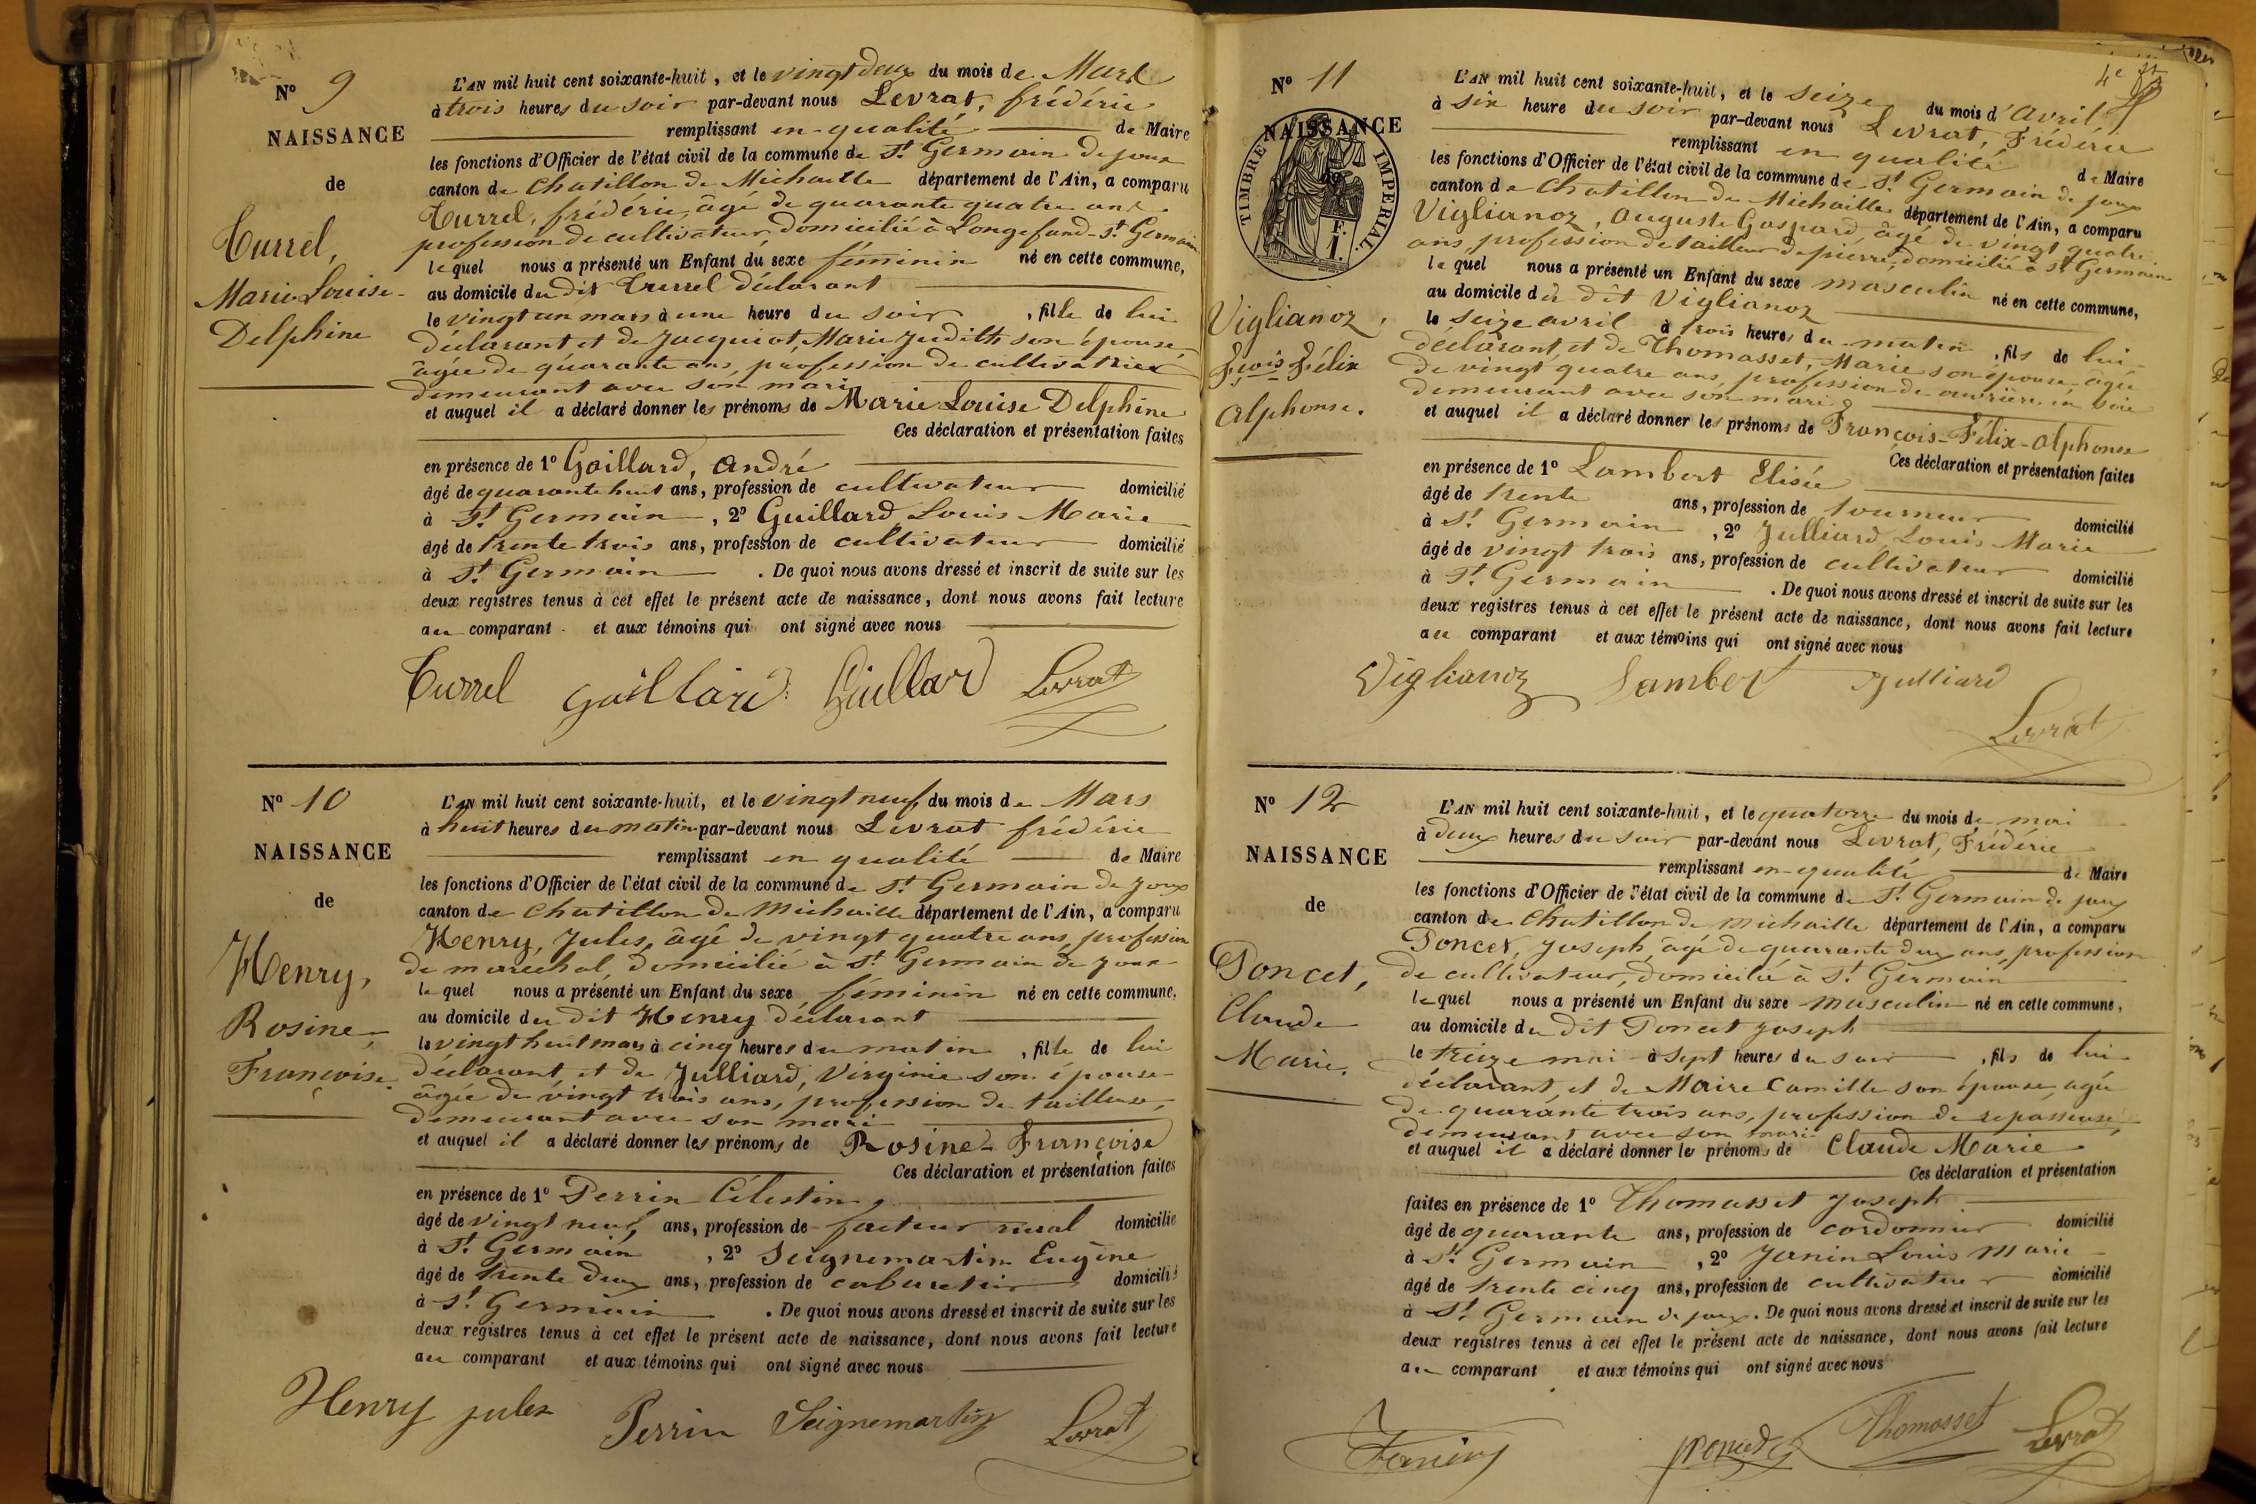 N° 9
NAISSANCE
de
Turrel,
Marie Louise
Delphine
L'AN mil huit cent soixante-huit, et le vingt deux du mois de Mars
à trois heures du soir par-devant nous Levrat, frédéric
remplissant en qualité de Maire
les fonctions d'Officier de l'état civil de la commune de St Germain de joux
canton de Chatillon de Michaille département de l'Ain, a comparu
Turrel, frédéric, âgé de quarante quatre ans
profession de cultivateur, domicilié à Longefand St Germain
lequel nous a présenté un Enfant du sexe féminin né en cette commune,
au domicile du dit Turrel déclarant
le vingt un mars à une heure du soir, fille de lui
déclarant et de Jacquiot, Marie Judith son épouse
âgée de quarante ans, profession de cultivatrice
demeurant avec son mari
et auquel il a déclaré donner les prénoms de Marie Louise Delphine
Ces déclaration et présentation faites
en présence de 1° Gaillard, André
âgé de quarante huit ans, profession de cultivateur domicilié
à St Germain, 2° Guillard Louis Marie
âgé de trente trois ans, profession de cultivateur domicilié
à St Germain. De quoi nous avons dressé et inscrit de suite sur les
deux registres tenus à cet effet le présent acte de naissance, dont nous avons fait lecture
au comparant et aux témoins qui ont signé avec nous
Turrel Gaillard Guillard Levrat
N° 10
NAISSANCE
de
Henry,
Rosine,
Françoise
L'AN mil huit cent soixante-huit, et le vingt neuf du mois de Mars
à huit heures du matin par-devant nous Levrat frédéric
remplissant en qualité de Maire
les fonctions d'Officier de l'état civil de la commune de St Germain de joux
canton de Chatillon de Michaille département de l'Ain, a comparu
Henry, Jules, âgé de vingt quatre ans, profession
de maréchal, domicilié à St Germain de joux
lequel nous a présenté un Enfant du sexe féminin né en cette commune,
au domicile du dit Henry déclarant
le vingt huit mars à cinq heures du matin, fille de lui
déclarant et de Julliard, Virginie son épouse
âgée de vingt trois ans, profession de tailleuse,
demeurant avec son mari
et auquel il a déclaré donner les prénoms de Rosine Françoise
Ces déclaration et présentation faites
en présence de 1° Perrin Célestin,
âgé de vingt neuf ans, profession de facteur rural domicilié
à St Germain, 2° Seignemartin Eugène
âgé de trente deux ans, profession de cabaretier domicilié
à St Germain. De quoi nous avons dressé et inscrit de suite sur les
deux registres tenus à cet effet le présent acte de naissance, dont nous avons fait lecture
au comparant et aux témoins qui ont signé avec nous
Henry jules Perrin Seignemartin Levrat
4e
N° 11
NAISSANCE
de
TIMBRE IMPERIAL.
F.
1.
Viglianoz,
Fçois Félix
Alphonse.
L'AN mil huit cent soixante-huit, et le seize du mois d'avril
à six heure du soir par-devant nous Levrat, Frédéric
remplissant en qualité de Maire
les fonctions d'Officier de l'état civil de la commune de St Germain de joux
canton de Chatillon de Michaille département de l'Ain, a comparu
Viglianoz, Auguste Gaspard âgé de vingt quatre
ans, profession de tailleur de pierre, domicilié à St Germain
lequel nous a présenté un Enfant du sexe masculin né en cette commune,
au domicile du dit Viglianoz
le seize avril à trois heures du matin, fils de lui
déclarant, et de Thomasset, Marie son épouse âgée
de vingt quatre ans, profession de ouvrière en soie
demeurant avec son mari
et auquel il a déclaré donner les prénoms de François-Félix-Alphonse
Ces déclaration et présentation faites
en présence de 1° Lambert Elisée
âgé de trente ans, profession de tourneur domicilié
à St Germain, 2° Julliard Louis Marie
âgé de vingt trois ans, profession de cultivateur domicilié
à St Germain. De quoi nous avons dressé et inscrit de suite sur les
deux registres tenus à cet effet le présent acte de naissance, dont nous avons fait lecture
au comparant et aux témoins qui ont signé avec nous
Viglianoz Lambert Julliard
Levrat
N° 12
NAISSANCE
de
Poncet,
Claude
Marie.
L'AN mil huit cent soixante-huit, et le quatorze du mois de mai
à deux heures du soir par-devant nous Levrat, Frédéric
remplissant en qualité de Maire
les fonctions d'Officier de l'état civil de la commune de St Germain de joux
canton de Chatillon de Michaille département de l'Ain, a comparu
Poncet, Joseph, âgé de quarante deux ans, profession
de cultivateur, domicilié à St Germain
lequel nous a présenté un Enfant du sexe masculin né en cette commune,
au domicile du dit Poncet Joseph
le treize mai à sept heures du soir, fils de lui
déclarant, et de Maire Camille son épouse, agée
de quarante trois ans, profession de repasseuse,
demeurant avec son mari
et auquel il a déclaré donner les prénoms de Claude Marie
Ces déclaration et présentation
faites en présence de 1° Thomasset Joseph
âgé de quarante ans, profession de cordonnier domicilié
à St Germain, 2° Janin Louis Marie
âgé de trente cinq ans, profession de cultivateur domicilié
à St Germain de joux. De quoi nous avons dressé et inscrit de suite sur les
deux registres tenus à cet effet le présent acte de naissance, dont nous avons fait lecture
au comparant et aux témoins qui ont signé avec nous
Janin poncet Thomasset Levrat